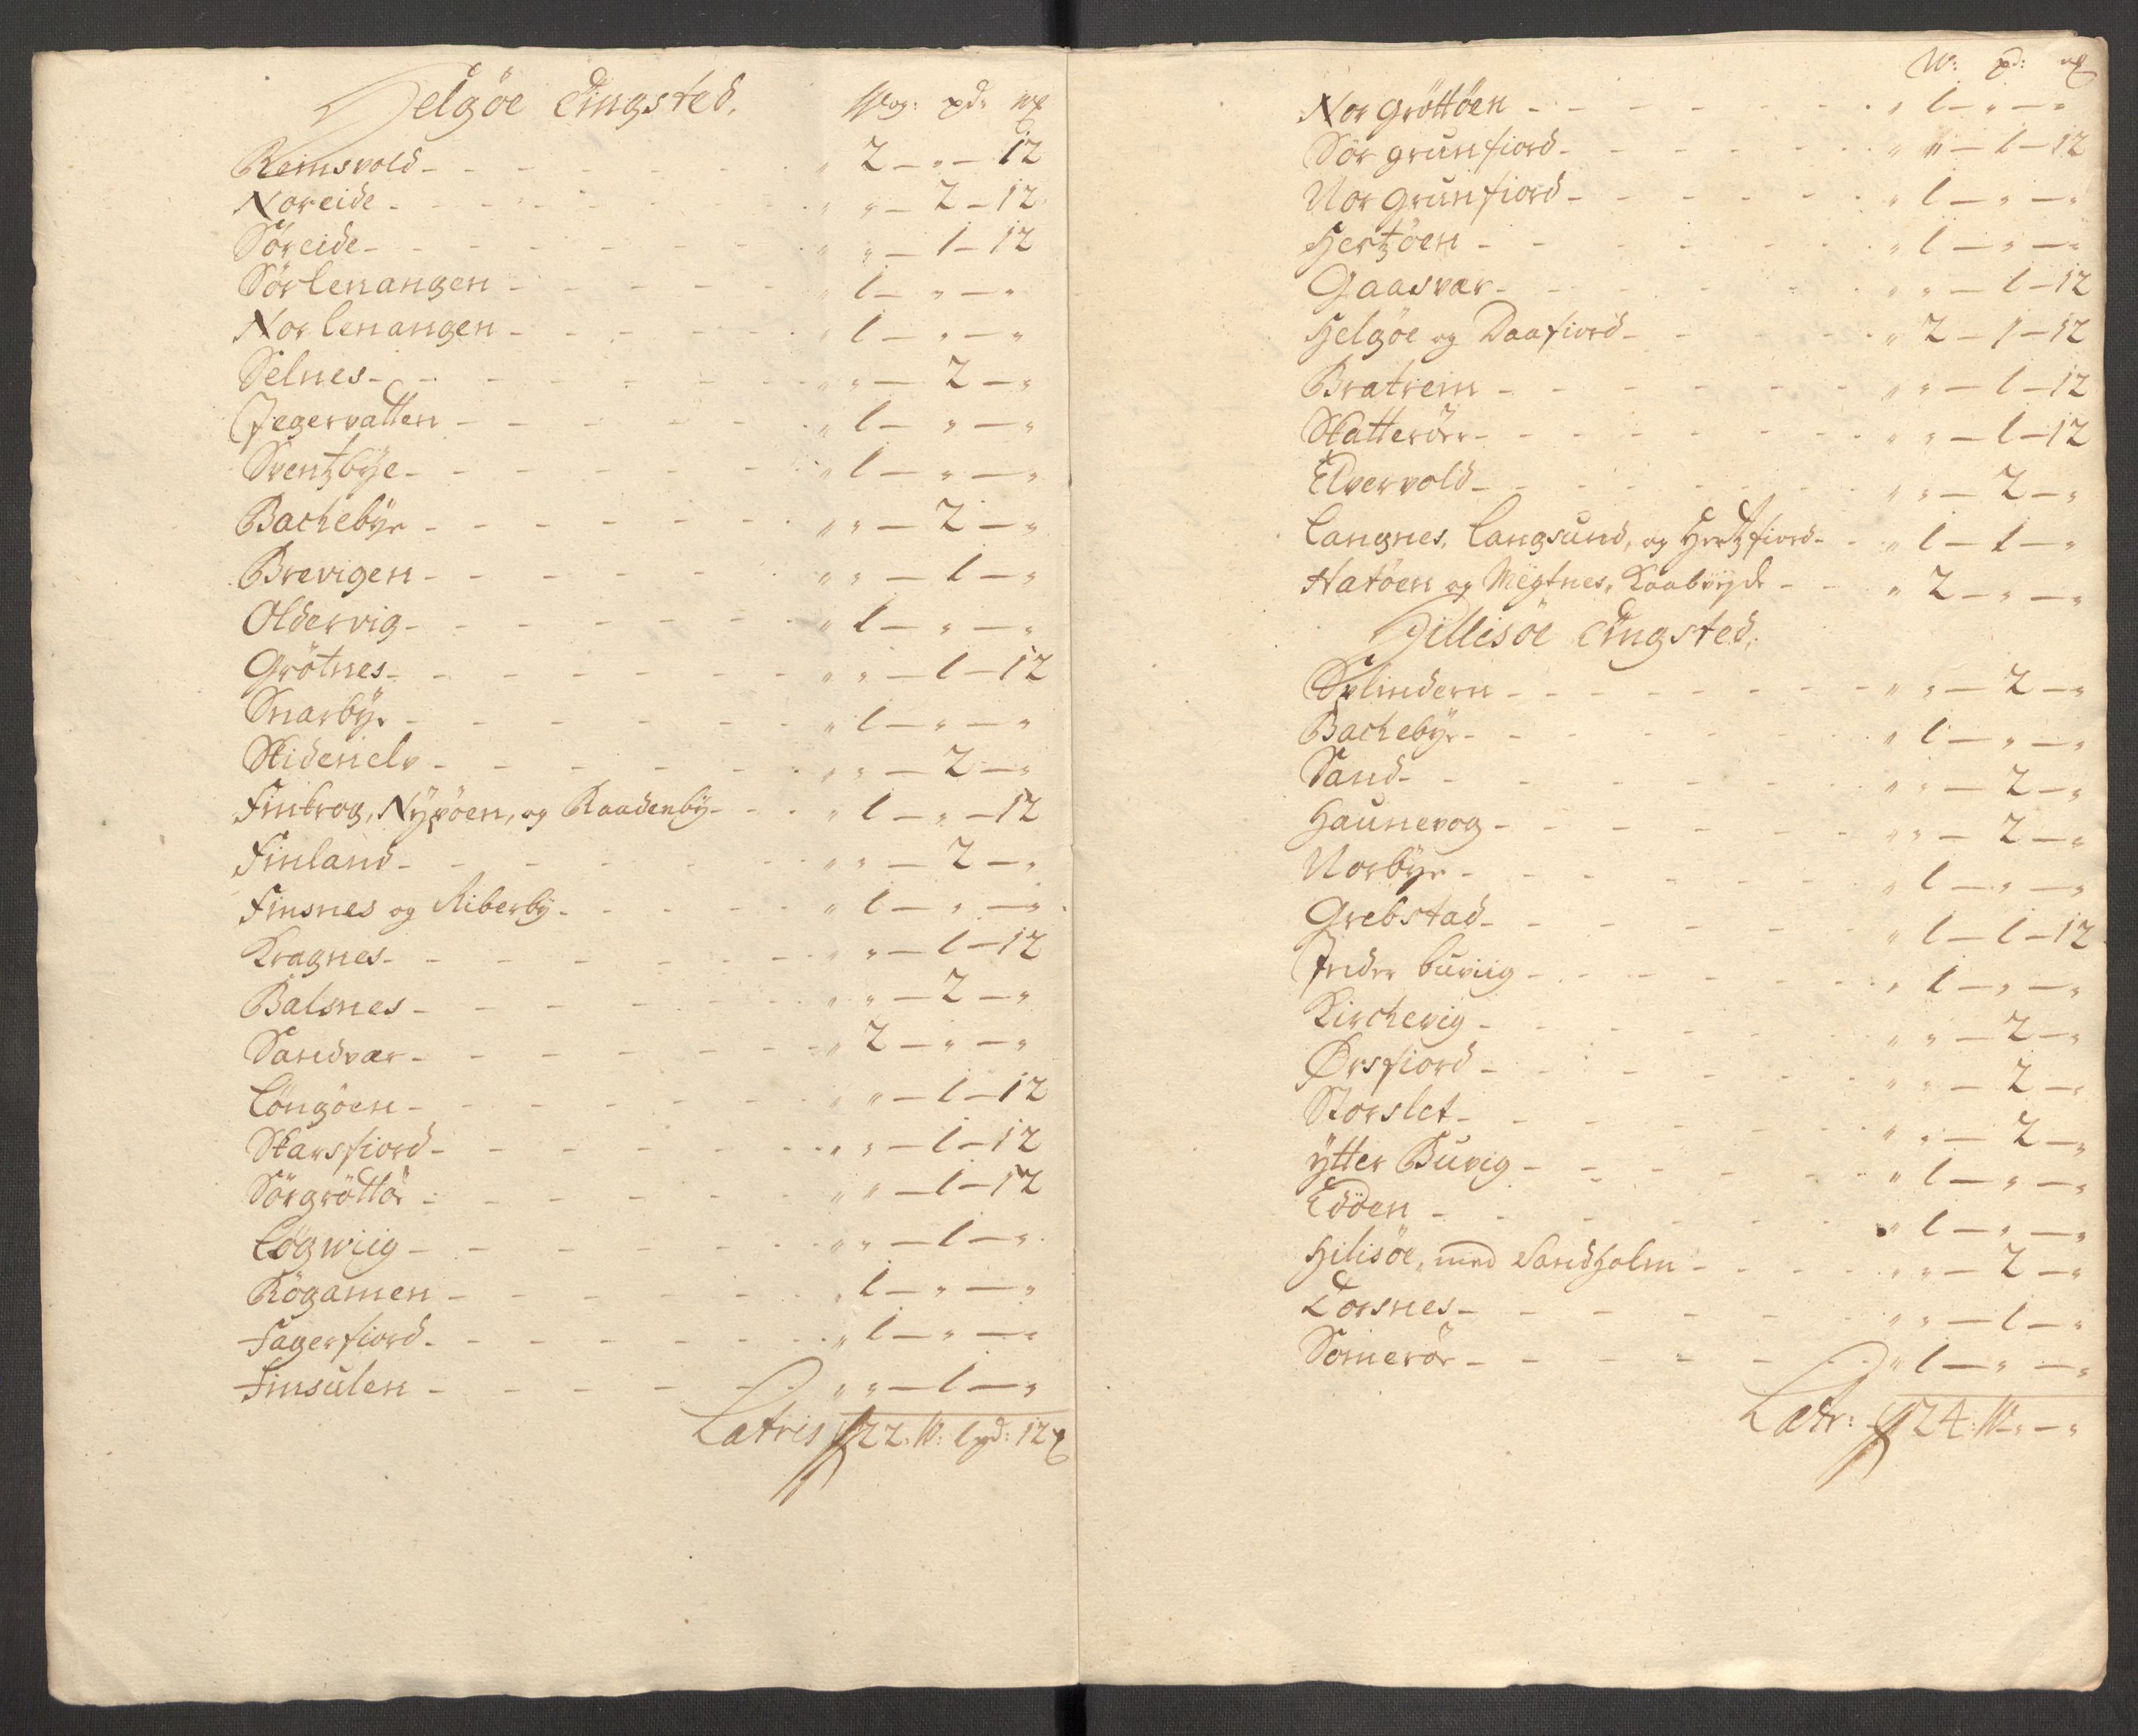 Helgöe Tingsted. Wog: pd: ℔
Remsvold - - - - - " 2 — " — 12
Noreide - - - - - " " — 2 — 12
Söreide - - - - - " " — 1 — 12
Sörlenangen - - - - - " 1 — " — "
Nor lenangen - - - - - " 1 — " — "
Selnes - - - - - " " — 2 — "
Jegervatten - - - - - " 1 — " — "
Sventzbÿe - - - - - " 1 — " — "
Bachebÿe - - - - - " " — 2 — "
Brevigen - - - - - " " — 1 — "
Oldervig - - - - - " 1 — " — "
Grötnes - - - - - " " — 1 — 12
Snarbÿe - - - - - " 1 — " — "
Skidenelv - - - - - " " — 2 — "
Finkrog, Nÿpöen, og Raadenbÿ - - - " 1 — " — 12
Finland - - - - - " " — 2 — "
Finsnes og Riberbÿ - - - - - " 1 — " — "
Kragnes - - - - - " " — 1 — 12
Balsnes - - - - - " " — 2 — "
Sandvær - - - - - " 2 — " — "
Löngöen - - - - - " " — 1 — 12
Skarsfiord - - - - - " " — 1 — 12
Sörgröttör - - - - - " " — 1 — 12
Lögwiig - - - - - " " — 1 — "
Rögamen - - - - - " 1 — " — "
Fagerfiord - - - - - " 1 — " — "
Finsulen - - - - - " " — 1 — "
Latris 22: W: 1 pd: 12 ℔
W: pd: ℔
Nor gröttöen - - - - - " 1 — " — "
Sör grunfiord - - - - - " " — 1 — 12
Nor grunfiord - - - - - " 1 — " — "
Hertzöen - - - - - " 1 — " — "
Gaasvær - - - - - " " — 1 — 12
Helgöe og Daafiord - - - - - " 2 — 1 — 12
Bratrein - - - - - " " — 1 — 12
Skatterör - - - - - " " — 1 — 12
Elvervold - - - - - " " — 2 — "
Langnes, Langsund, og Hertzfiord - - " 1 — 1 — "
Hatöen og Megtnes, Kaabvÿde - - " 2 — " — "
Hillisöe Tingsted.
Sylindern - - - - - " " — 2 — "
Bachebÿe - - - - - " 1 — " — "
Sand - - - - - " " — 2 — "
Haunevog - - - - - " " — 2 — "
Norbÿe - - - - - " 1 — " — "
Grebstad - - - - - " 1 — 1 — 12
Inder buviig - - - - - " 1 — " — "
Kirchevig - - - - - " " — 2 — "
Örsfiord - - - - - " " — 2 — "
Storslet - - - - - " " — 2 — "
ÿtter Buvig - - - - - " 1 — " — "
Edöen - - - - - " 1 — " — "
Hilisöe, med Sandholm - - - - " " — 2 — "
Torsnes - - - - - " " — 1 — "
Somerör - - - - - " 1 — " — "
Latr: 24: W — " — "